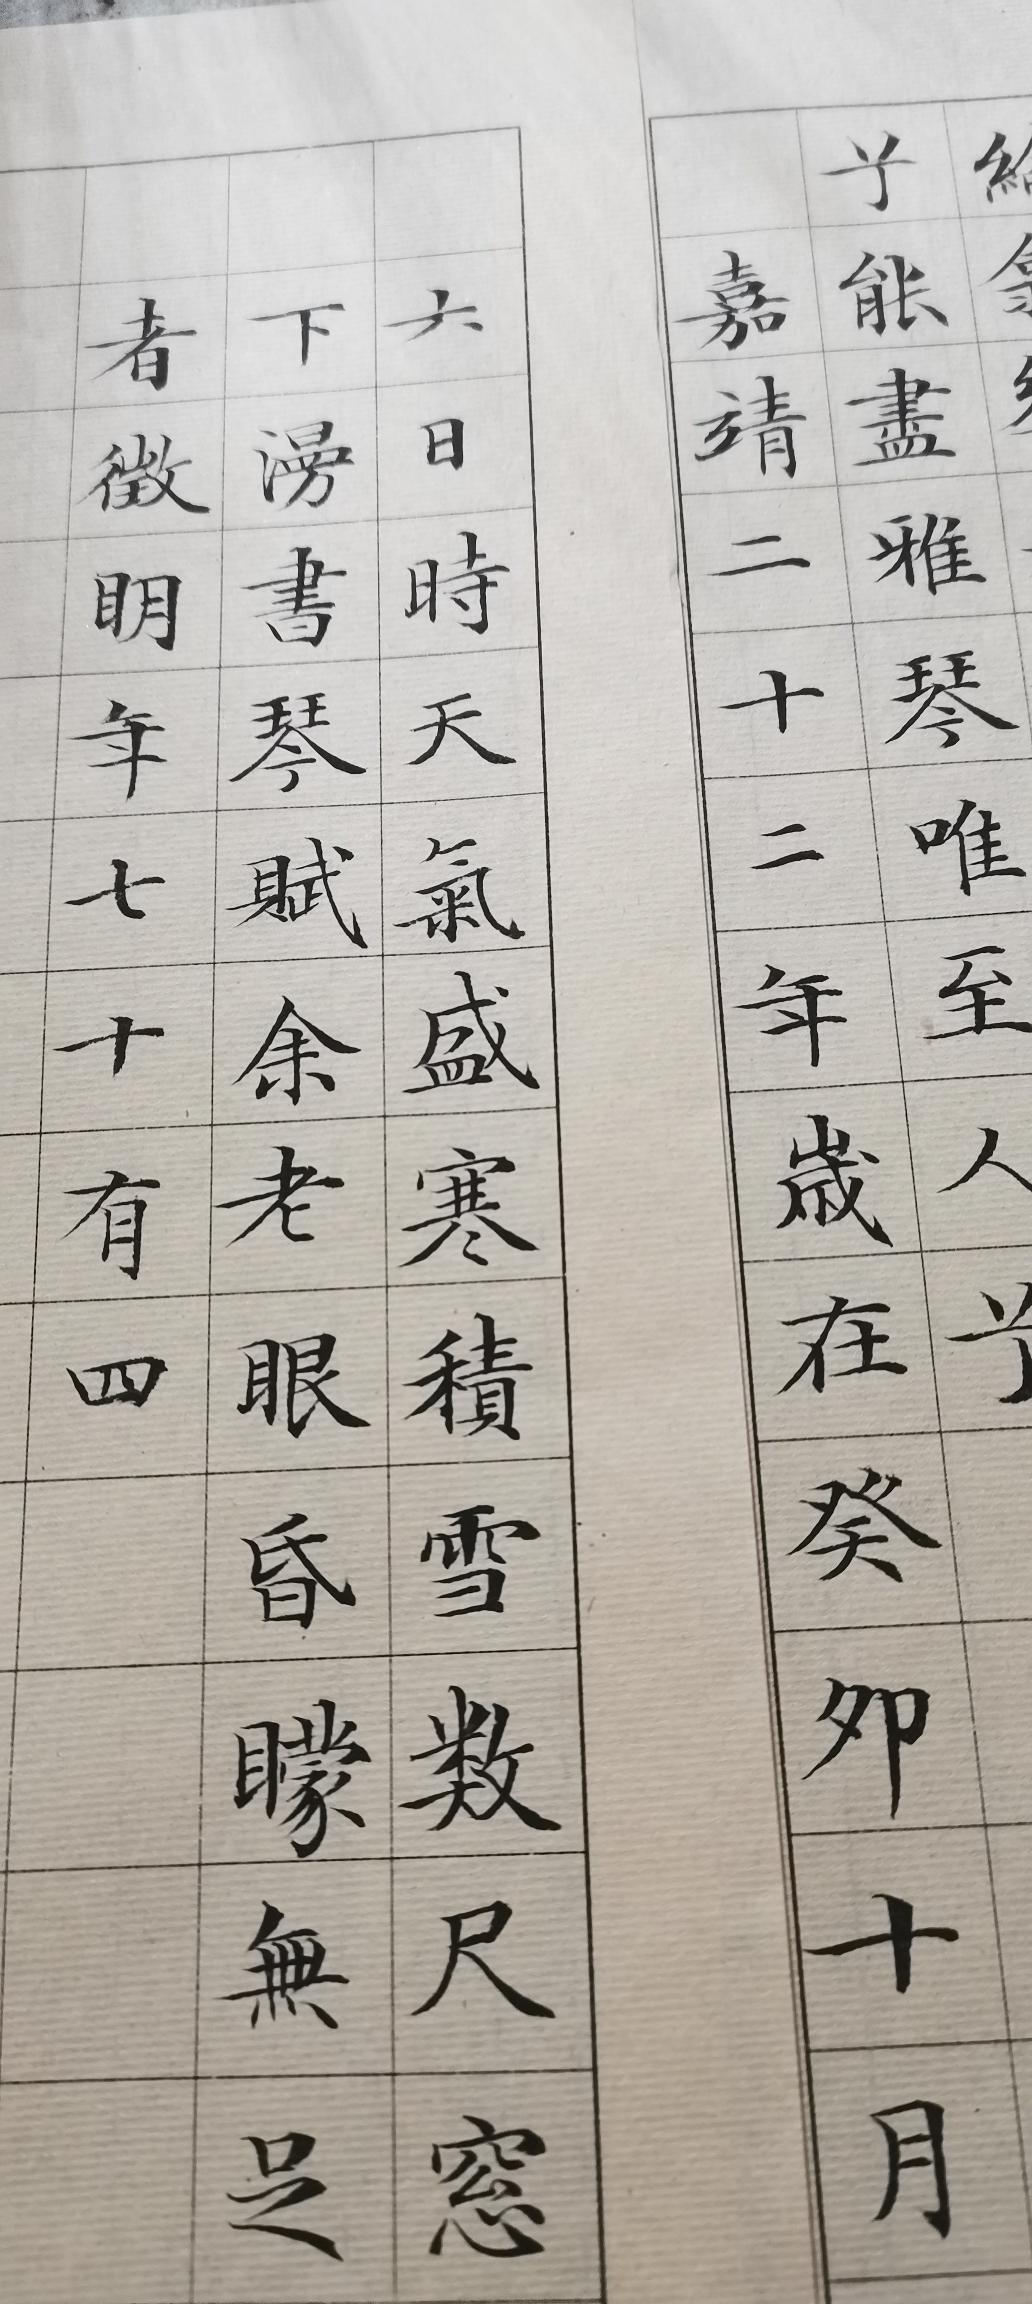 兮能盡雅琴唯至人兮
嘉靖二十二年歲在癸卯十月
六日時天氣盛寒積雪数尺窓
下漫書琴賦余老眼昏矇無足
者徵明年七十有四